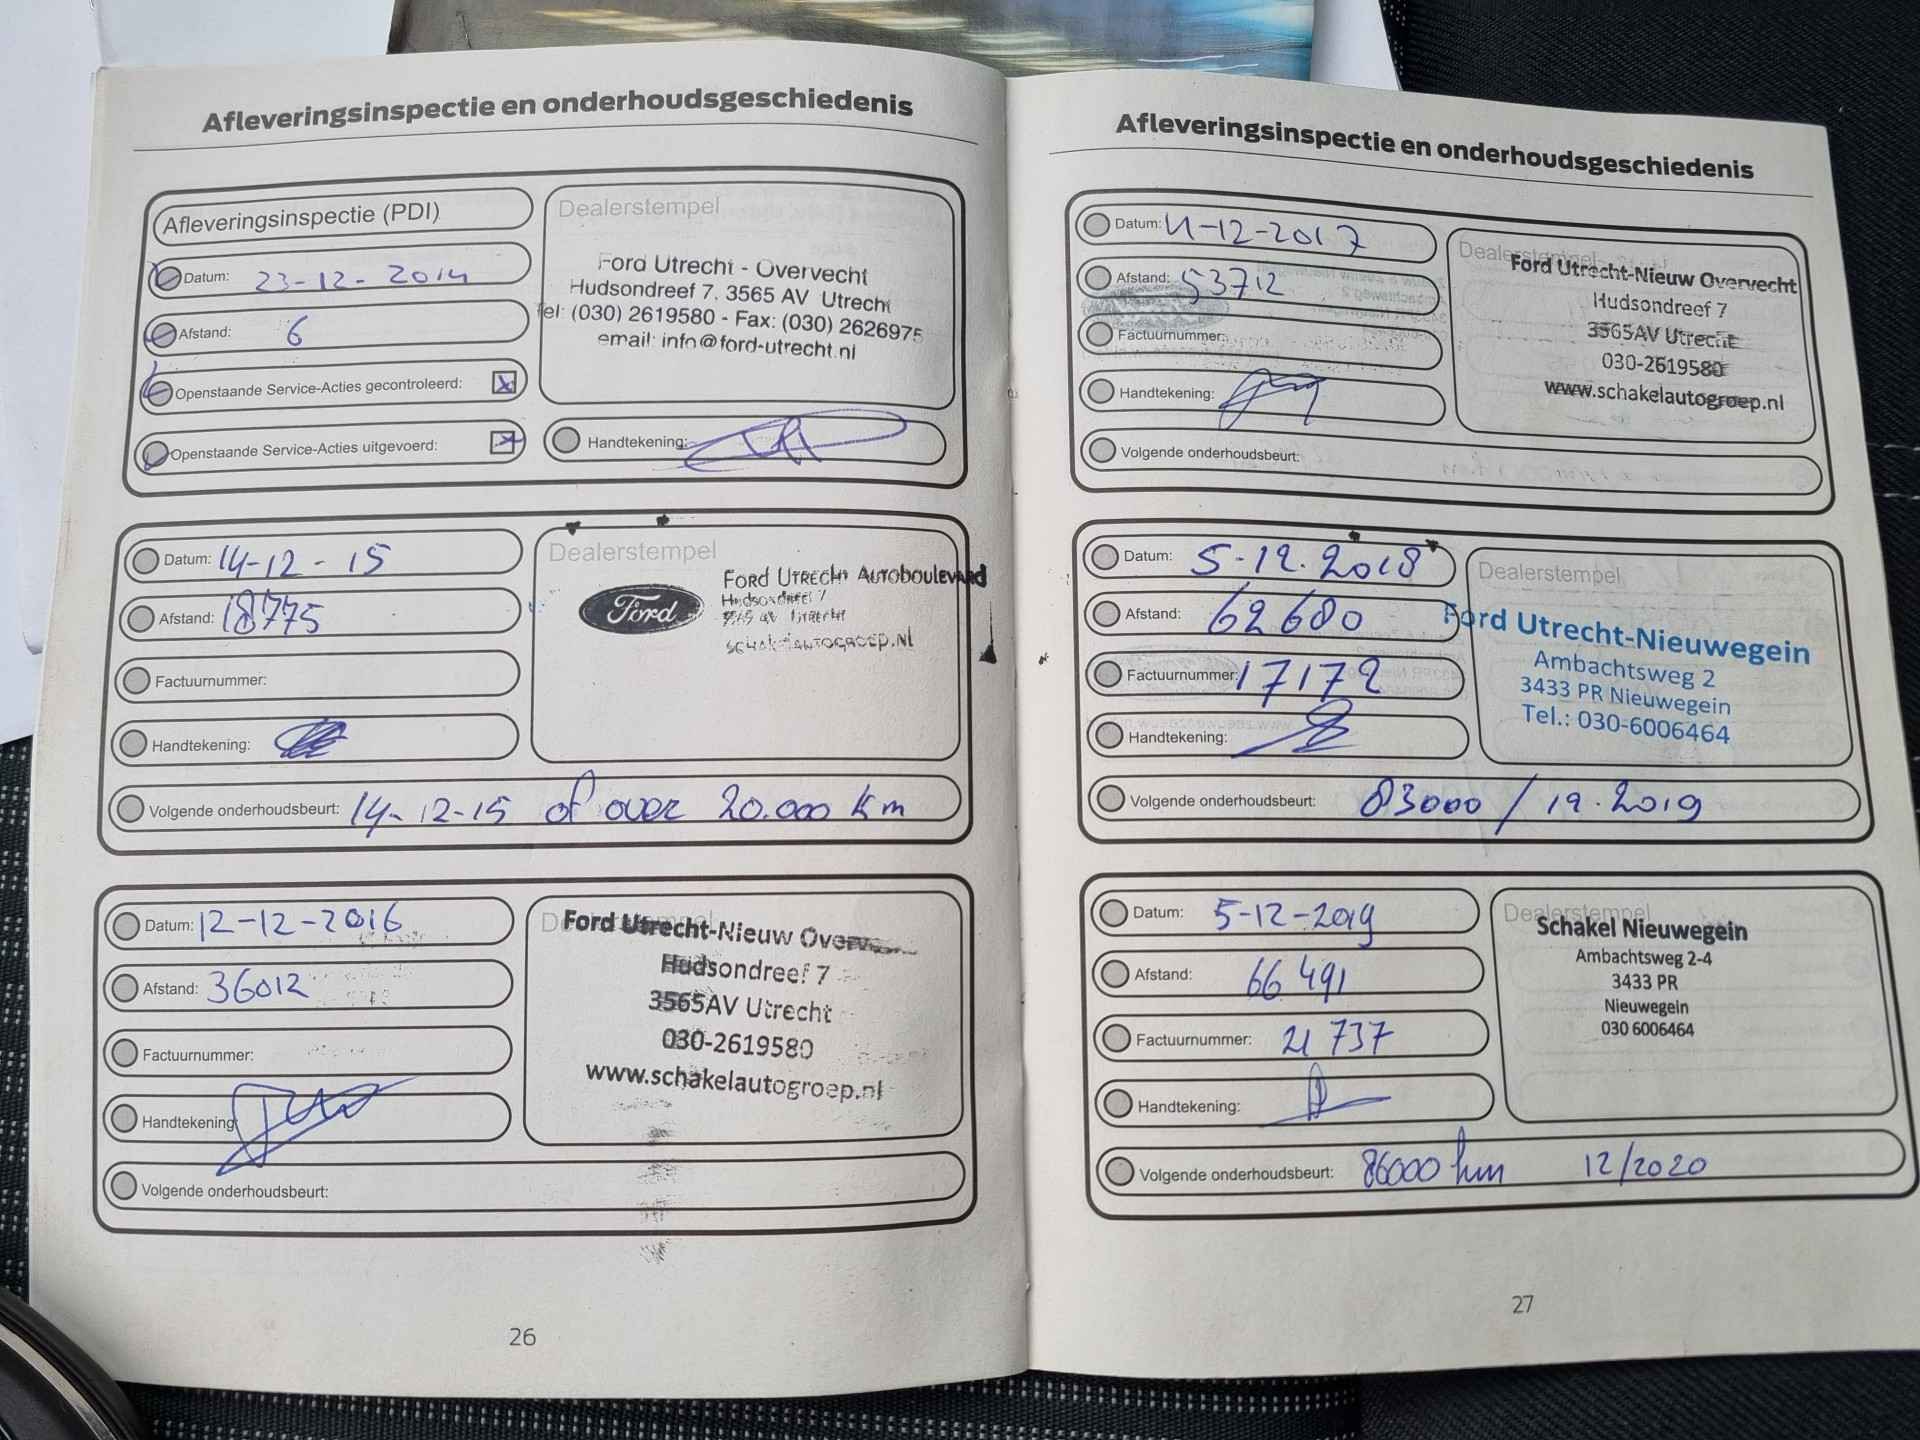 Afleveringsinspectie en onderhoudsgeschiedenis
Afleveringsinspectie (PDI)
Datum: 23-12-2014
Afstand: 6
Openstaande Service-Acties gecontroleerd: x
Openstaande Service-Acties uitgevoerd: x
Dealerstempel
Ford Utrecht - Overvecht
Hudsondreef 7, 3565 AV Utrecht
Tel: (030) 2619580 - Fax: (030) 2626975
email: info@ford-utrecht.nl
Handtekening:
Datum: 14-12-15
Afstand: 18775
Factuurnummer:
Handtekening:
Dealerstempel
Ford
FORD UTRECHT AUTOBOULEVARD
Hudsondreef 7
Utrecht
SCHAKELAUTOGROEP.NL
Volgende onderhoudsbeurt: 14-12-15 of over 20.000 km
Datum: 12-12-2016
Afstand: 36012
Factuurnummer:
Handtekening:
Dealerstempel
Ford Utrecht-Nieuw
Hudsondreef 7
3565AV Utrecht
030-2619580
www.schakelautogroep.nl
Volgende onderhoudsbeurt:
26
Afleveringsinspectie en onderhoudsgeschiedenis
Datum: 4-12-2017
Afstand: 53712
Factuurnummer:
Handtekening:
Dealerstempel
Ford Utrecht-Nieuw Overvecht
Hudsondreef 7
3565AV Utrecht
030-2619580
www.schakelautogroep.nl
Volgende onderhoudsbeurt:
Datum: 5-12.2018
Afstand: 62680
Factuurnummer: 17172
Handtekening:
Dealerstempel
Ford Utrecht-Nieuwegein
Ambachtsweg 2
3433 PR Nieuwegein
Tel.: 030-6006464
Volgende onderhoudsbeurt: 83000 / 12.2019
Datum: 5-12-2019
Afstand: 66 491
Factuurnummer: 21 737
Handtekening:
Dealerstempel
Schakel Nieuwegein
Ambachtsweg 2-4
3433 PR
Nieuwegein
030 6006464
Volgende onderhoudsbeurt: 86000 km 12/2020
27